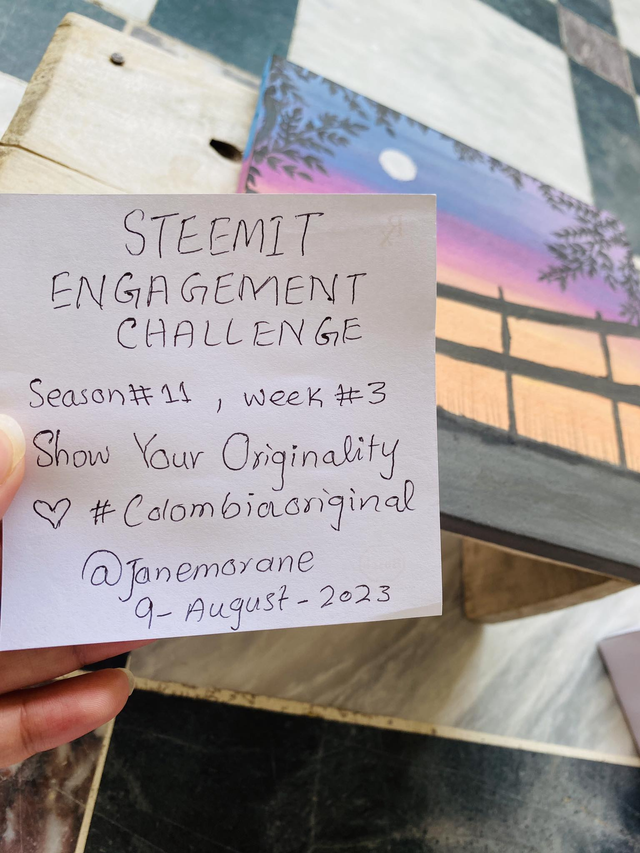 STEEMIT
ENGAGEMENT
CHALLENGE
Season#11 , week #3
Show Your Originality
♡ #Colombiaoriginal
@Janemorane
9-August-2023